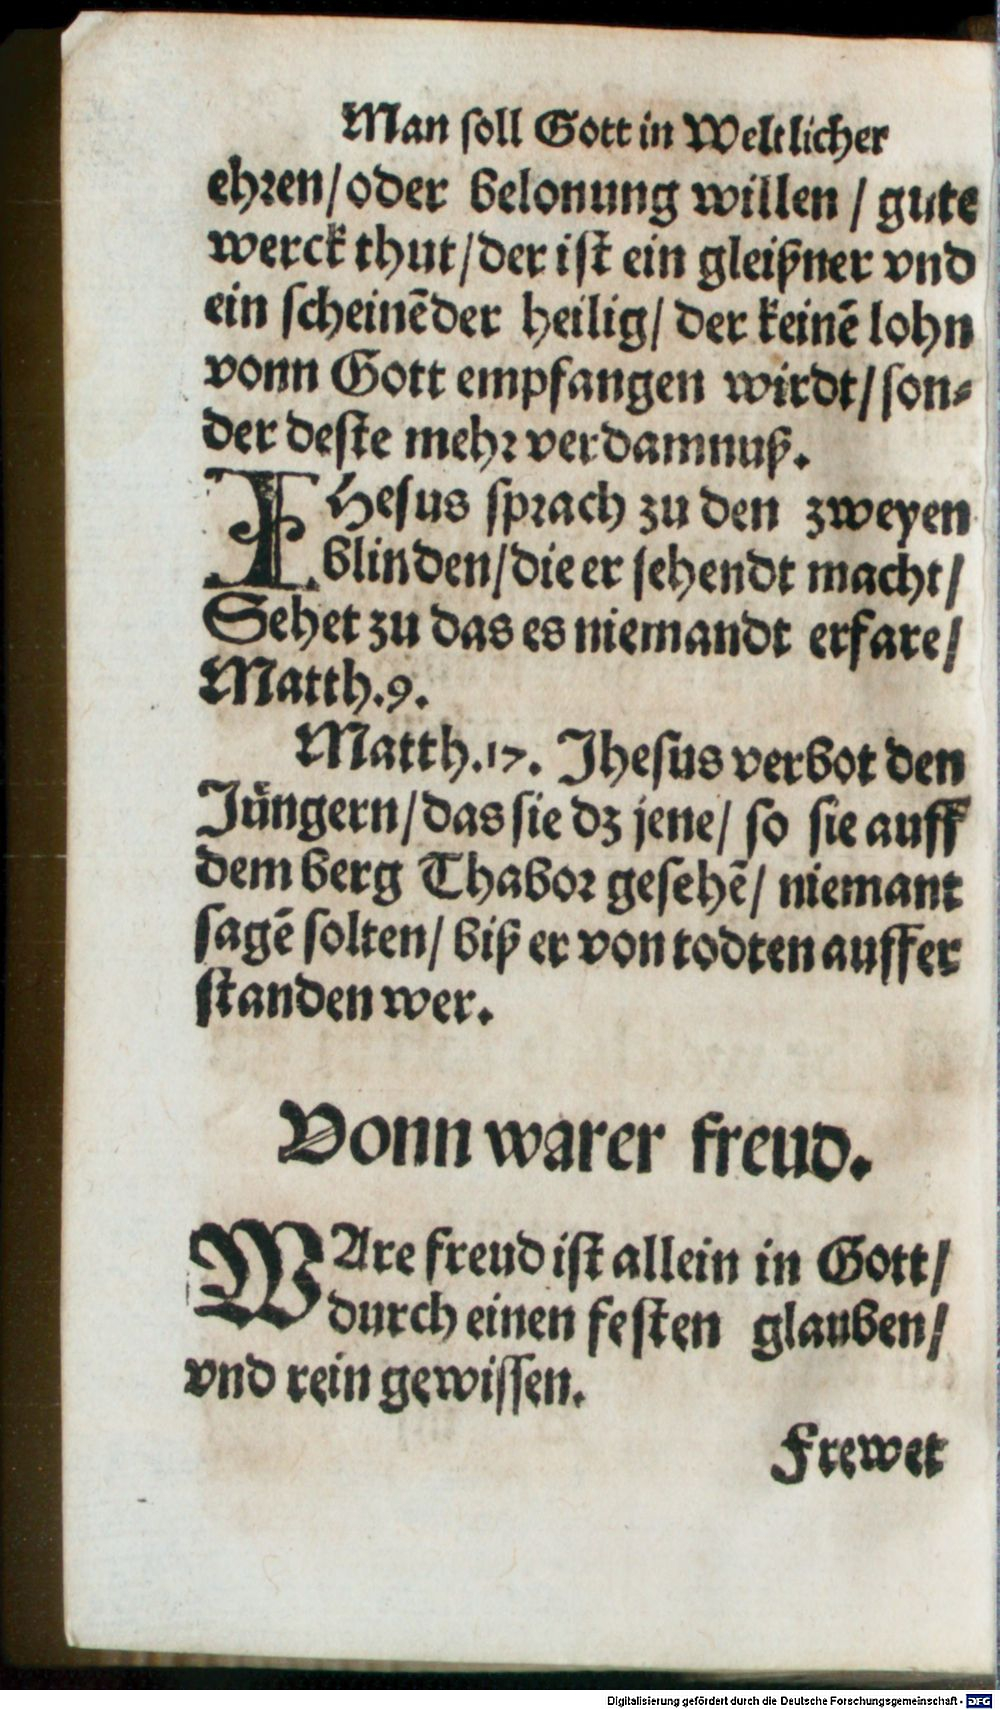 Man soll Gott in Weltlicher
ehren/oder belonung willen / gute
werck thut/der ist ein gleißner vnd
ein scheinēder heilig/ der keinē lohn
vonn Gott empfangen wirdt/son-
der deste mehr verdamnuß.
IHesus sprach zu den zweyen
blinden/die er sehendt macht/
Sehet zu das es niemandt erfare/
Matth.9.
Matth.17. Jhesus verbot den
Jüngern/das sie dz jene/ so sie auff
dem berg Thabor gesehē/ niemant
sagē solten/ biß er von todten auffer
standen wer.
Vonn warer freud.
WAre freud ist allein in Gott/
durch einen festen glauben/
vnd rein gewissen.
Frewet
Digitalisierung gefördert durch die Deutsche Forschungsgemeinschaft - DFG